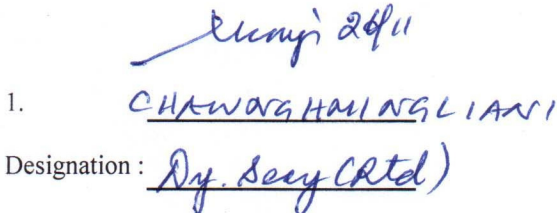 26/11
1. CHAWNGHMINGLIANI
Designation : Dy. Secy (Rtd)